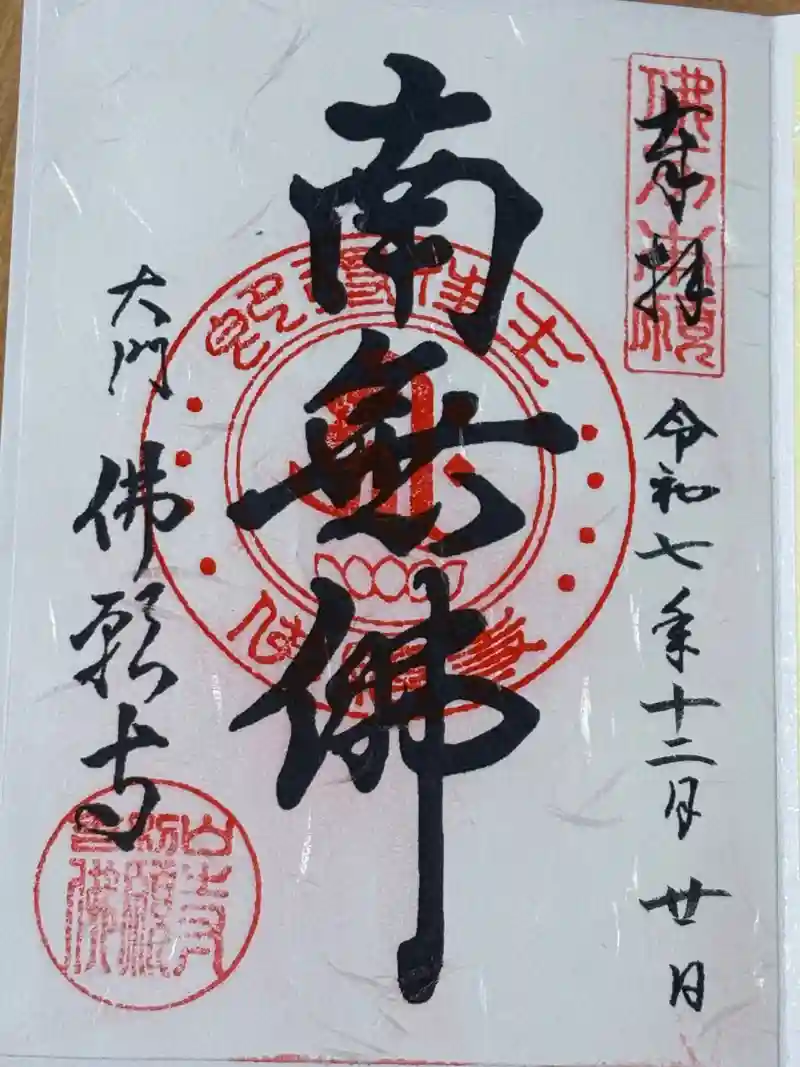 奉拝
令和七年十二月廿日
南無佛
大門
佛願寺